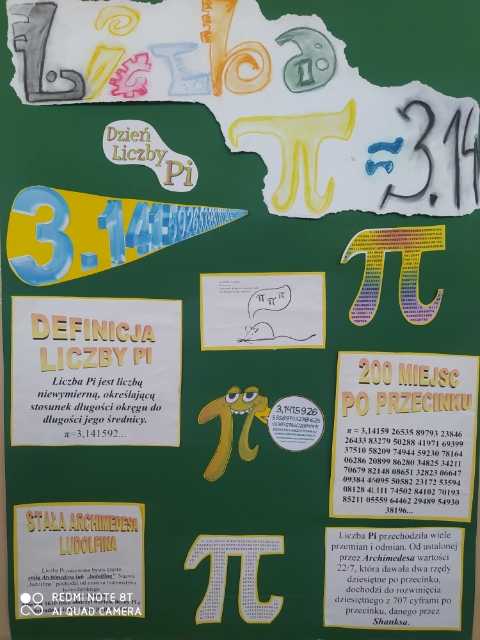 Liczba
π ≈ 3.14
Dzień
Liczby
Pi
3.14159265
π
π π π
DEFINICJA
LICZBY PI
Liczba Pi jest liczbą
niewymierną, określającą
stosunek długości okręgu do
długości jego średnicy.
π=3,141592...
3,1415926
200 MIEJSC
PO PRZECINKU
π = 3,14159 26535 89793 23846
26433 83279 50288 41971 69399
37510 58209 74944 59230 78164
06286 20899 86280 34825 34211
70679 82148 08651 32823 06647
09384 46095 50582 23172 53594
08128 48111 74502 84102 70193
85211 05559 64462 29489 54930
38196...
STAŁA ARCHIMEDESA
LUDOLFINA
Liczba Pi przechodziła wiele
przemian i odmian. Od ustalonej
przez Archimedesa wartości
22/7, która dawała dwa rzędy
dziesiętne po przecinku,
dochodzi do rozwinięcia
dziesiętnego z 707 cyframi po
przecinku, danego przez
Shanksa.
π
REDMI NOTE 8T
AI QUAD CAMERA